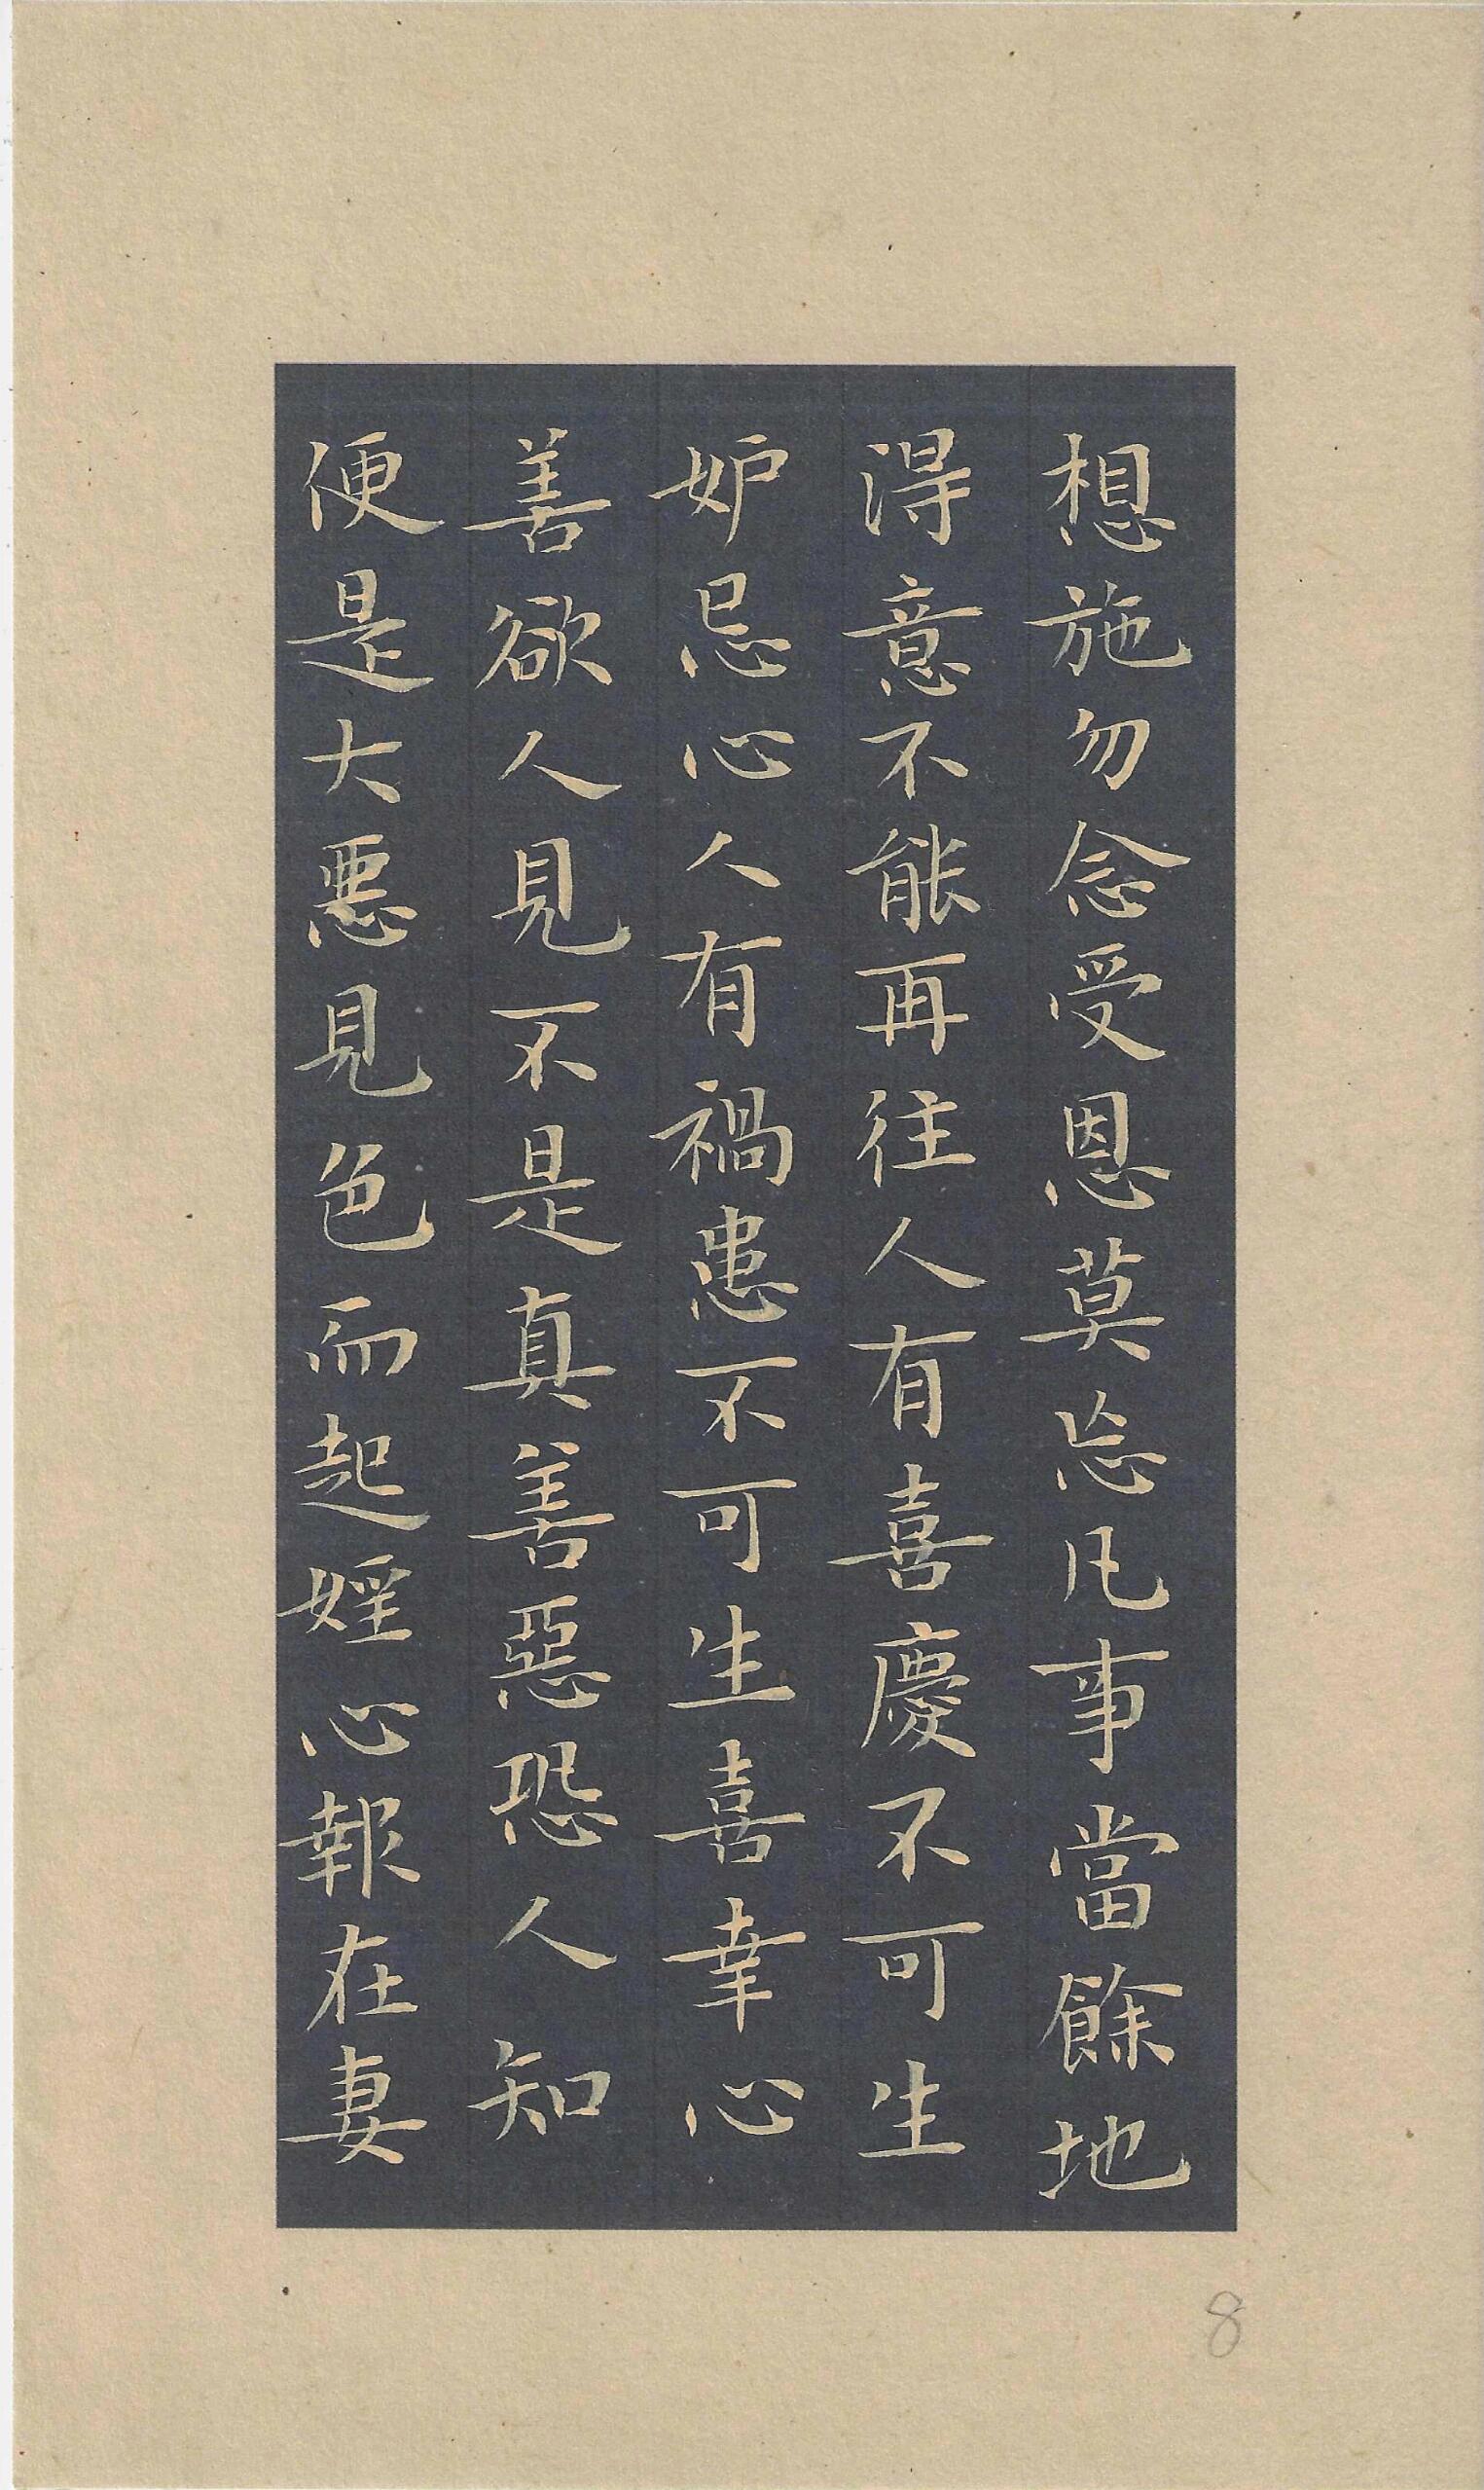 想施勿念受恩莫忘凡事當餘地
得意不能再往人有喜慶不可生
妒忌心人有禍患不可生喜幸心
善欲人見不是真善惡恐人知
便是大惡見色而起婬心報在妻
8